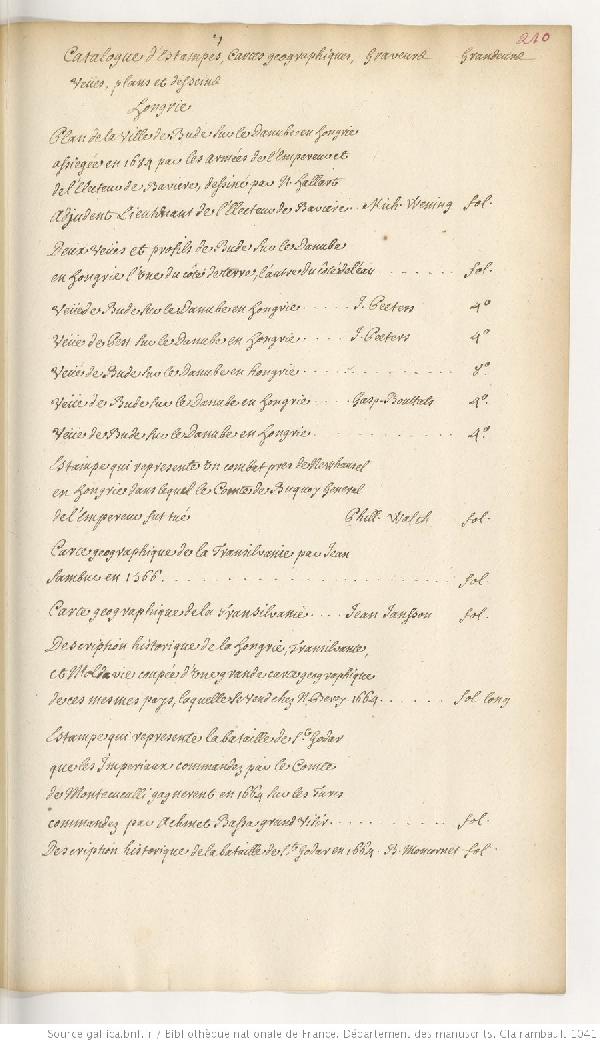 210
Catalogue d'Estampes, Cartes geographiques, Graveurs Grandeurs
Veües, plans et desseins
Hongrie
Plan de la Ville de Bude sur le Danube en Hongrie
assiegée en 1684 par les armées de l'Empereur et
de l'Electeur de Baviere, dessiné par N. Hallart
Adjudent Lieutenant de l'Electeur de Baviere. Mich. Wening fol.
Deux Veües et profils de Bude sur le Danube
en Hongrie l'une du côté de terre, l'autre du côté de l'eau ...... fol.
Veüe de Bude sur le Danube en Hongrie ..... J. Peeters 4°
Veüe de Pest sur le Danube en Hongrie .... J. Peeters 4°
Veüe de Bude sur le Danube en hongrie ............ 8°
Veüe de Bude sur le Danube en Hongrie .... Gasp. Bouttats 4°.
Veüe de Bude sur le Danube en Hongrie ............ 4°.
Estampe qui represente un combat pres de
en Hongrie dans lequel le Comte de Buquoy General
de l'Empereur fut tué Phill. Walch fol.
Carte geographique de la Transilvanie par Jean
Sambuc en 1566 .................... fol.
Carte geographique de la Transilvanie .... Jean Jansson fol.
Description historique de la Hongrie, Transilvanie,
et Moldavie coupée d'une grande carte geographique
de ces mesmes pays, laquelle se vend chez N. 1664 ...... fol. long
Estampe qui represente la bataille de St. Godar
que les Imperiaux commandez par le Comte
de Montecuculli gagnerent en 1664 sur les Turcs
commandez par Achmet Bassa grand Visir .......... fol.
Description historique de la bataille de St. Godar en 1664. B. Moncornet fol.
Source gallica.bnf.fr / Bibliothèque nationale de France. Département des manuscrits. Clairambault 1041